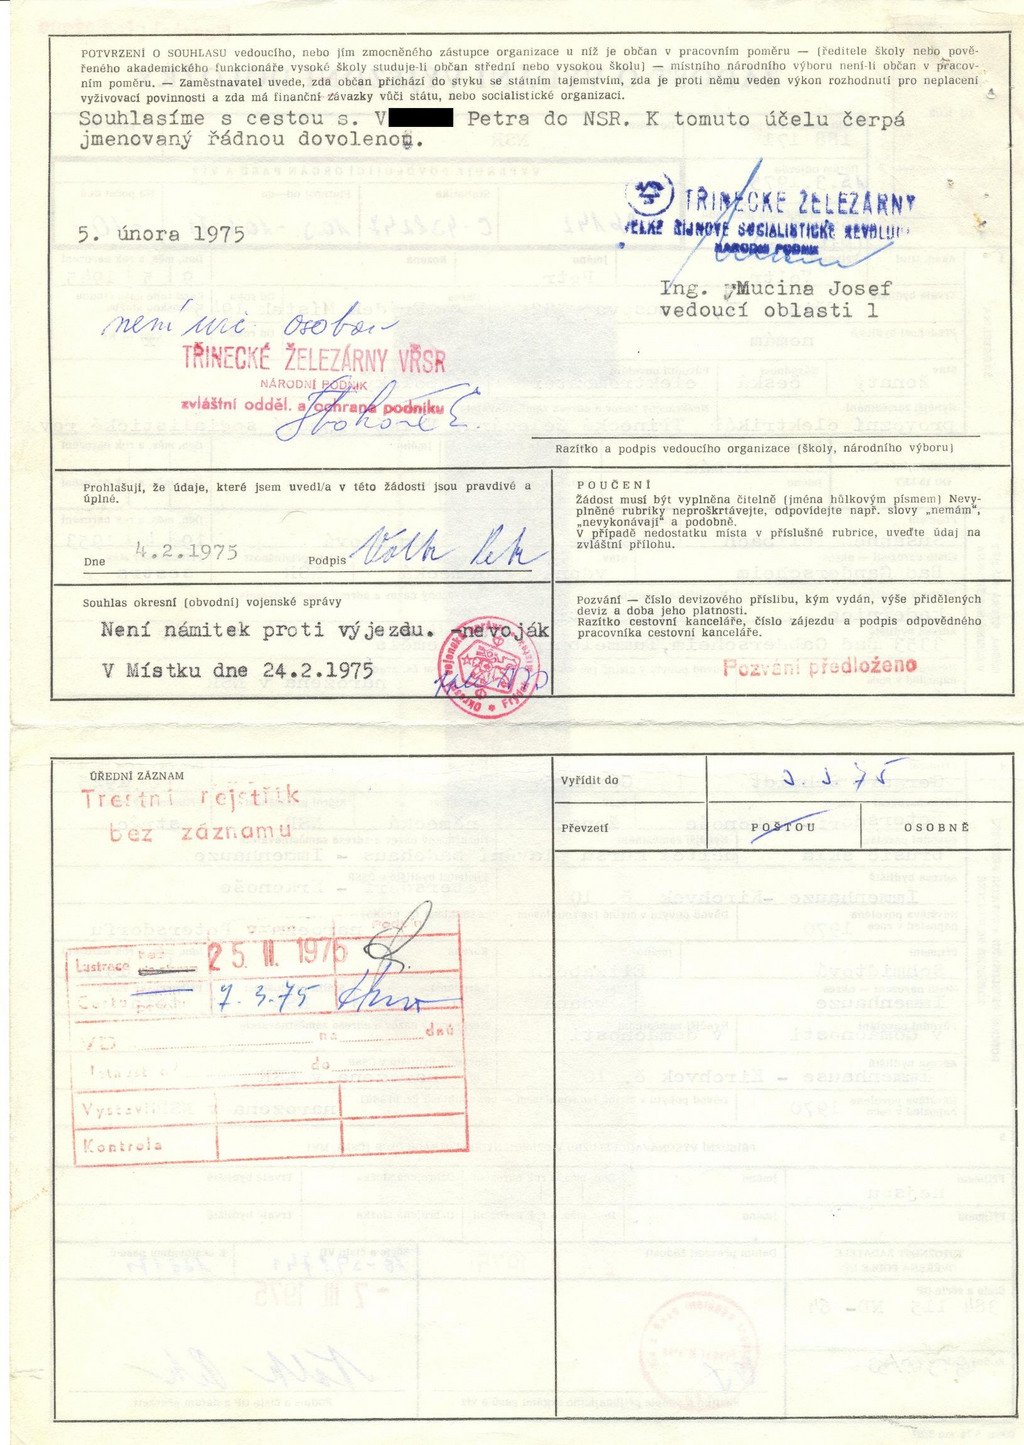 POTVRZENÍ O SOUHLASU vedoucího, nebo jím zmocněného zástupce organizace u níž je občan v pracovním poměru — (ředitele školy nebo pově-
řeného akademického funkcionáře vysoké školy studuje-li občan střední nebo vysokou školu) — místního národního výboru není-li občan v pracov-
ním poměru. — Zaměstnavatel uvede, zda občan přichází do styku se státním tajemstvím, zda je proti němu veden výkon rozhodnutí pro neplacení
vyživovací povinnosti a zda má finanční závazky vůči státu, nebo socialistické organizaci.
Souhlasíme s cestou s. V Petra do NSR. K tomuto účelu čerpá
jmenovaný řádnou dovolenou.
TŘINECKÉ ŽELEZÁRNY
VELKÉ ŘÍJNOVÉ SOCIALISTICKÉ REVOLUC
NÁRODNÍ PODNIK
5. února 1975
Ing. Mucina Josef
vedoucí oblasti 1
není osobou
TŘINECKÉ ŽELEZÁRNY VŘSR
NÁRODNÍ PODNIK
zvláštní odděl. a ochrana podniku
Razítko a podpis vedoucího organizace (školy, národního výboru)
Prohlašuji, že údaje, které jsem uvedl/a v této žádosti jsou pravdivé a
úplné.
Dne 4.2.1975 Podpis
POUČENÍ
Žádost musí být vyplněna čitelně (jména hůlkovým písmem) Nevy-
plněné rubriky neproškrtávejte, odpovídejte např. slovy „nemám",
„nevykonávají" a podobně.
V případě nedostatku místa v příslušné rubrice, uveďte údaj na
zvláštní přílohu.
Souhlas okresní (obvodní) vojenské správy
Není námitek proti výjezdu. -nevoják
V Místku dne 24.2.1975
Pozvání — číslo devizového příslibu, kým vydán, výše přidělených
deviz a doba jeho platnosti.
Razítko cestovní kanceláře, číslo zájezdu a podpis odpovědného
pracovníka cestovní kanceláře.
Pozvání předloženo
ÚŘEDNÍ ZÁZNAM
Trestní rejstřík
bez záznamu
Vyřídit do 3.3.75
Převzetí POŠTOU OSOBNĚ
Lustrace 25. II. 1975
7.3.75
na dnů
do
Kontrola